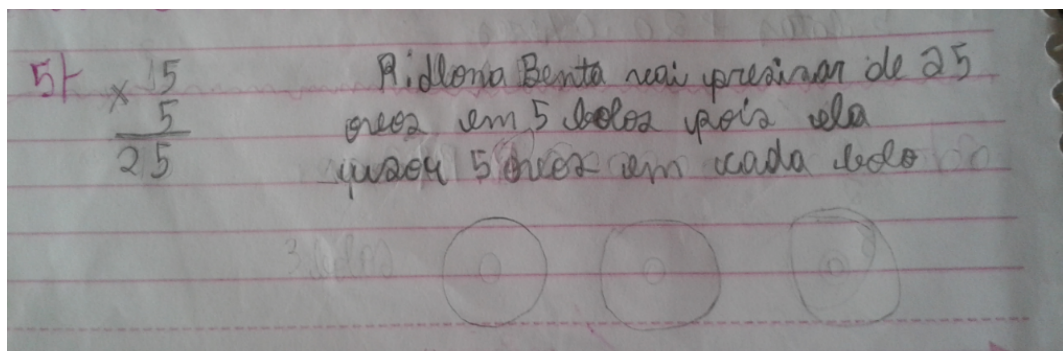 5)-
5
× 5
25
R: dona Benta vai precisar de 25
ovos em 5 bolos pois ela
quzou 5 ovos em cada bolo
3 bolos